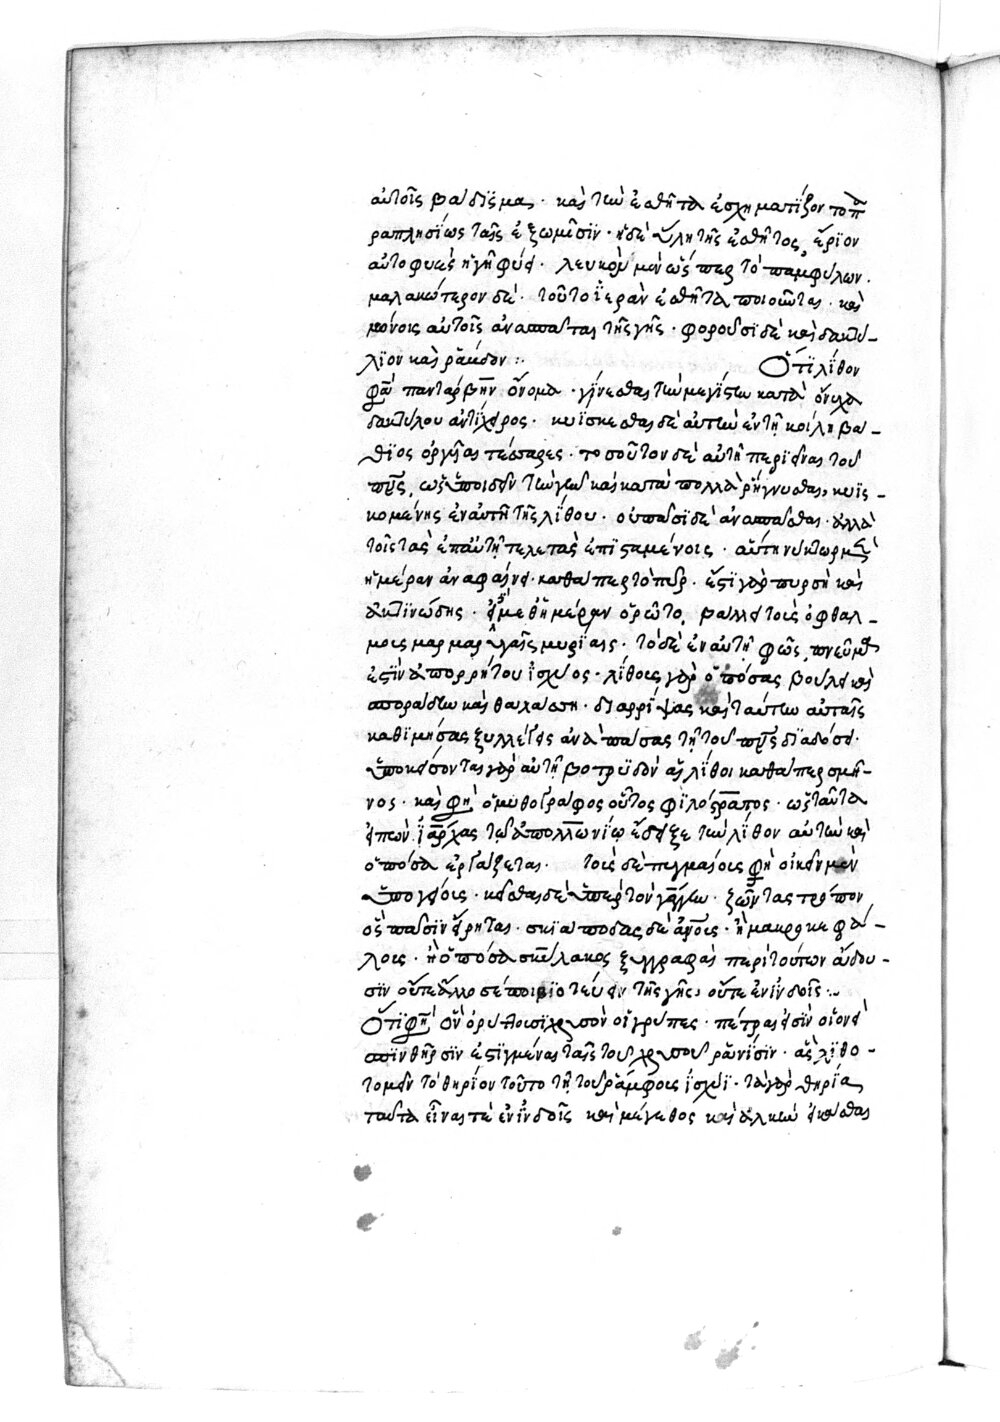 αὐτοῖς βαδίσμασι· καὶ τὴν ἐσθῆτα ἐσχημάτιζον τοπα
ραπλησίως ταῖς ἐξωμίσιν· ἡ δὲ ὕλη τῆς ἐσθῆτος, ἔριον
αὐτοφυὲς ἡ γῆ φύει· λευκὸν μὲν ὥσπερ τὸ παμφύλων·
μαλακώτερον δέ· τοῦτο ἱερὰν ἐσθῆτα ποιοῦνται· καὶ
μόνοις αὐτοῖς ἀνασπᾶται τῆς γῆς· φοροῦσι δὲ καὶ δακτύ-
λιον καὶ ῥάβδον:· Ὅτι λίθον
φασὶ παντάρβην ὄνομα· γίνεσθαι τὴν μεγίστην κατὰ ὄνυχα
δακτύλου ἀντίχειρος· κυΐσκεσθαι δὲ αὐτὴν ἐν τῇ κοίλῃ βά-
θος ὀργυιαὶ τέσσαρες· τοσοῦτον δὲ αὐτῇ περιεῖναι τοῦ
πνεύματος, ὡς ὑποιδεῖν τὴν γῆν καὶ κατὰ πολλὰ ῥήγνυσθαι, κυϊσ-
κομένης ἐν αὐτῇ τῆς λίθου· οὐ πᾶσι δὲ ἀνασπᾶσθαι· ἀλλὰ
τοῖς τὰς ἐπ' αὐτῇ τελετὰς ἐπισταμένοις· αὕτη νύκτωρ μὲν
ἡμέραν ἀναφαίνει· καθάπερ τὸ πῦρ· ἔστι γὰρ πυρσὴ καὶ
ἀκτινώδης· εἰ μεθ' ἡμέραν ὁρῷτο, βάλλει τοὺς ὀφθαλ-
μοὺς μαρμαρυγαῖς μυρίαις· τὸ δὲ ἐν αὐτῇ φῶς, πνεῦμά
ἐστιν ἀπορρήτου ἰσχύος· λίθους γὰρ ὁπόσας βούλει καὶ
σποράδην καὶ θαλάσσῃ· διαρρίψας καὶ ταύτην αὐταῖς
καθιμήσας ξυλλέγεις ἁπάσας τῇ τοῦ πνεύματος διαδόσει·
ὑποκείσονται γὰρ αὐτῇ βοτρυδὸν αἱ λίθοι καθάπερ σμῆ-
νος· καὶ φησὶ ὁ μυθογράφος οὗτος φιλόστρατος· ὡς ταῦτα
εἰπὼν ἰάρχας τῷ ἀπολλωνίῳ ἔδειξε τὴν λίθον αὐτὴν καὶ
ὁπόσα ἐργάζεται· τοὺς δὲ πυγμαίους φησὶ οἰκεῖν μὲν
ὑπογείους· κεῖσθαι δὲ ὑπὲρ τὸν γάγγην· ζῶντας τρόπον
ὃς πᾶσιν εἴρηται· σκιάποδας δὲ ἀνθρώπους· ἢ μακροκεφά-
λους· ἢ ὁπόσα σκύλακος ξυγγραφαὶ περὶ τούτων ᾄδου-
σιν οὔτε ἄλλοσέ ποι βιοτεύειν τῆς γῆς, οὔτε ἐν ἰνδοῖς:·
Ὅτι φησὶ ὃν ὀρύττουσι χρυσὸν οἱ γρῦπες· πέτραι εἰσὶν οἷον εἰ
σπινθῆρσιν ἐστιγμέναι ταῖς τοῦ χρυσοῦ ῥανίσιν· ἃς λιθο-
τομεῖν τὸ θηρίον τοῦτο τῇ τοῦ ῥάμφους ἰσχύϊ· τὰ γὰρ θηρία
ταῦτα εἶναί τε ἐν ἰνδοῖς καὶ μέγεθος καὶ ἀλκὴν εἰκάσθαι